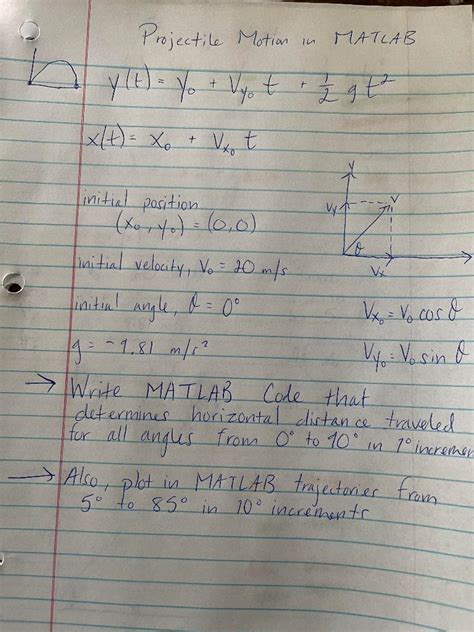 Projectile Motion in MATLAB
y(t) = y₀ + Vy₀ t + 1/2 g t²
x(t) = x₀ + Vx₀ t
initial position
(x₀, y₀) = (0,0)
y
Vy
V
θ
Vx
initial velocity, V₀ = 20 m/s
initial angle, θ = 0°
Vx₀ = V₀ cos θ
g = -9.81 m/s²
Vy₀ = V₀ sin θ
→ Write MATLAB Code that
determines horizontal distance traveled
for all angles from 0° to 90° in 1° incremen
→ Also, plot in MATLAB trajectories from
5° to 85° in 10° increments